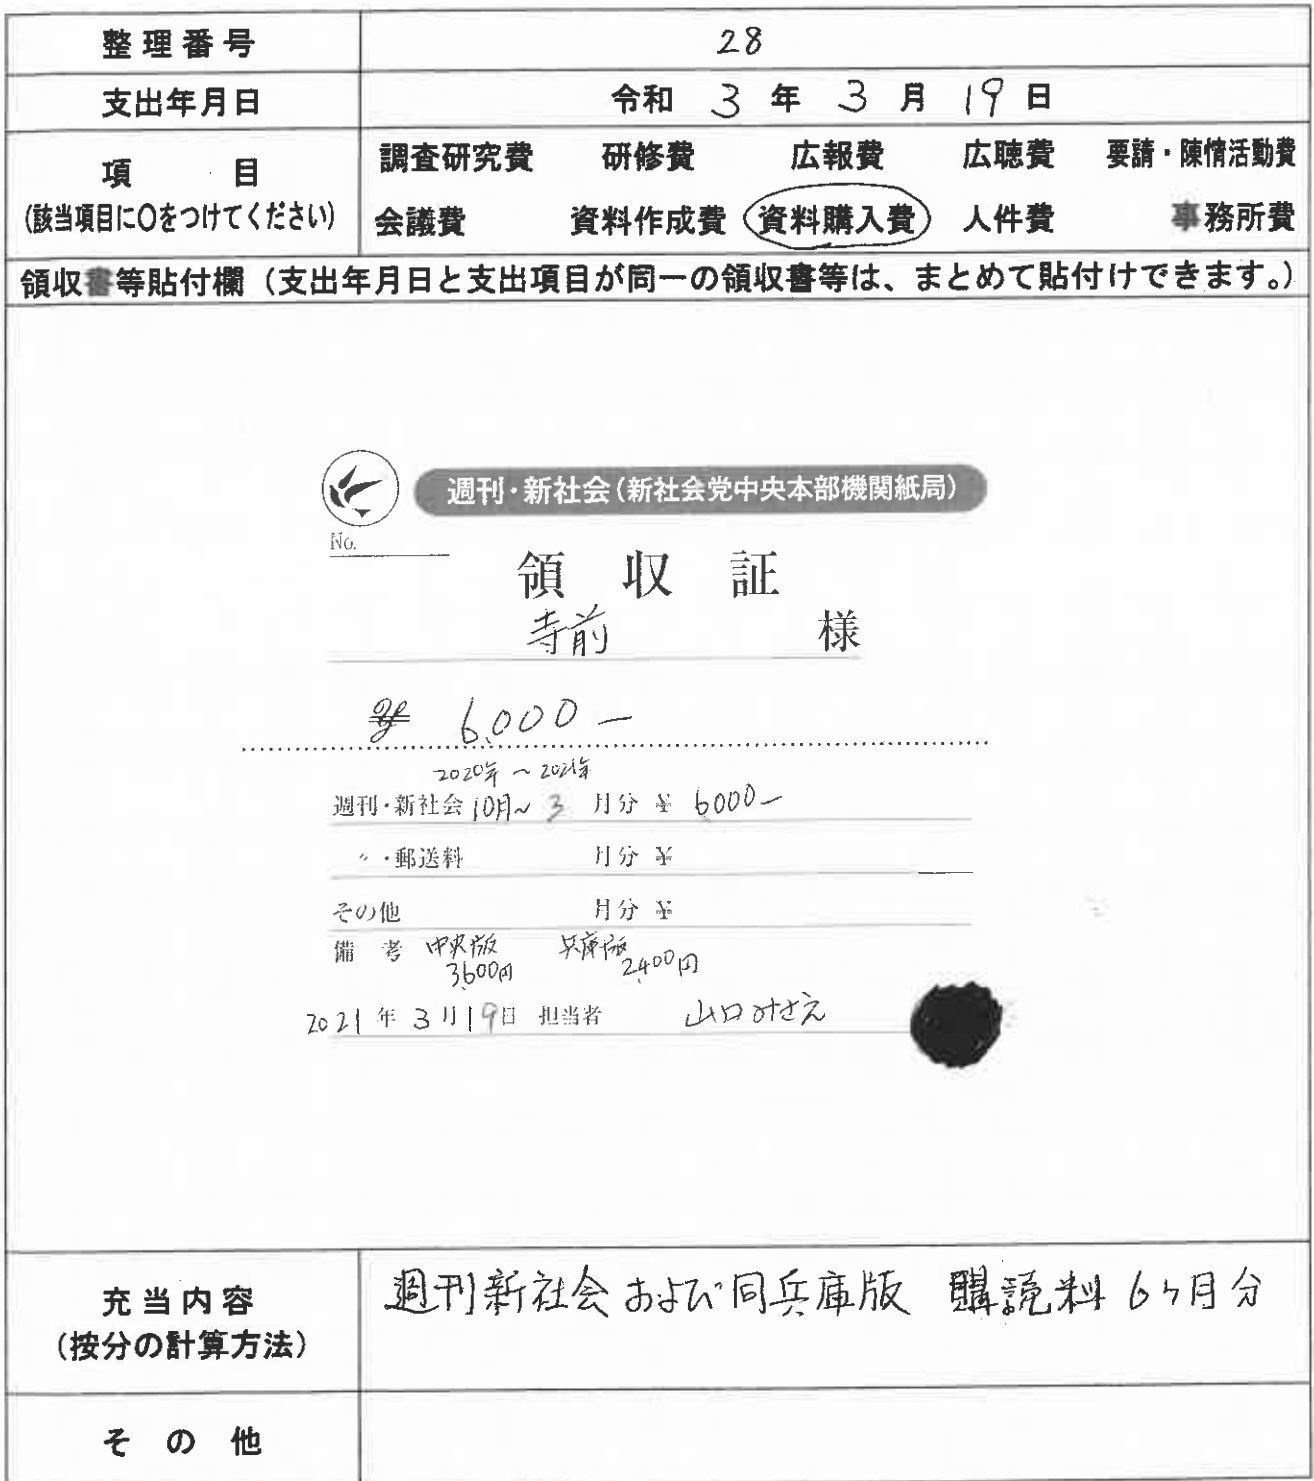 整理番号 28
支出年月日 令和 3 年 3 月 19 日
項 目
(該当項目に〇をつけてください)
調査研究費 研修費 広報費 広聴費 要請・陳情活動費
会議費 資料作成費 資料購入費 人件費 事務所費
領収書等貼付欄(支出年月日と支出項目が同一の領収書等は、まとめて貼付けできます。)
週刊・新社会(新社会党中央本部機関紙局)
No.
領 収 証
寺前 様
¥ 6,000 —
2020年 ~ 2021年
週刊・新社会 10月~ 3 月分 ¥ 6,000 —
〃・郵送料 月分 ¥
その他 月分 ¥
備 考 中央版 兵庫版
3,600円 2,400円
2021 年 3 月 19 日 担当者 山口みさえ
充当内容
(按分の計算方法)
週刊新社会および同兵庫版 購読料 6ヶ月分
そ の 他